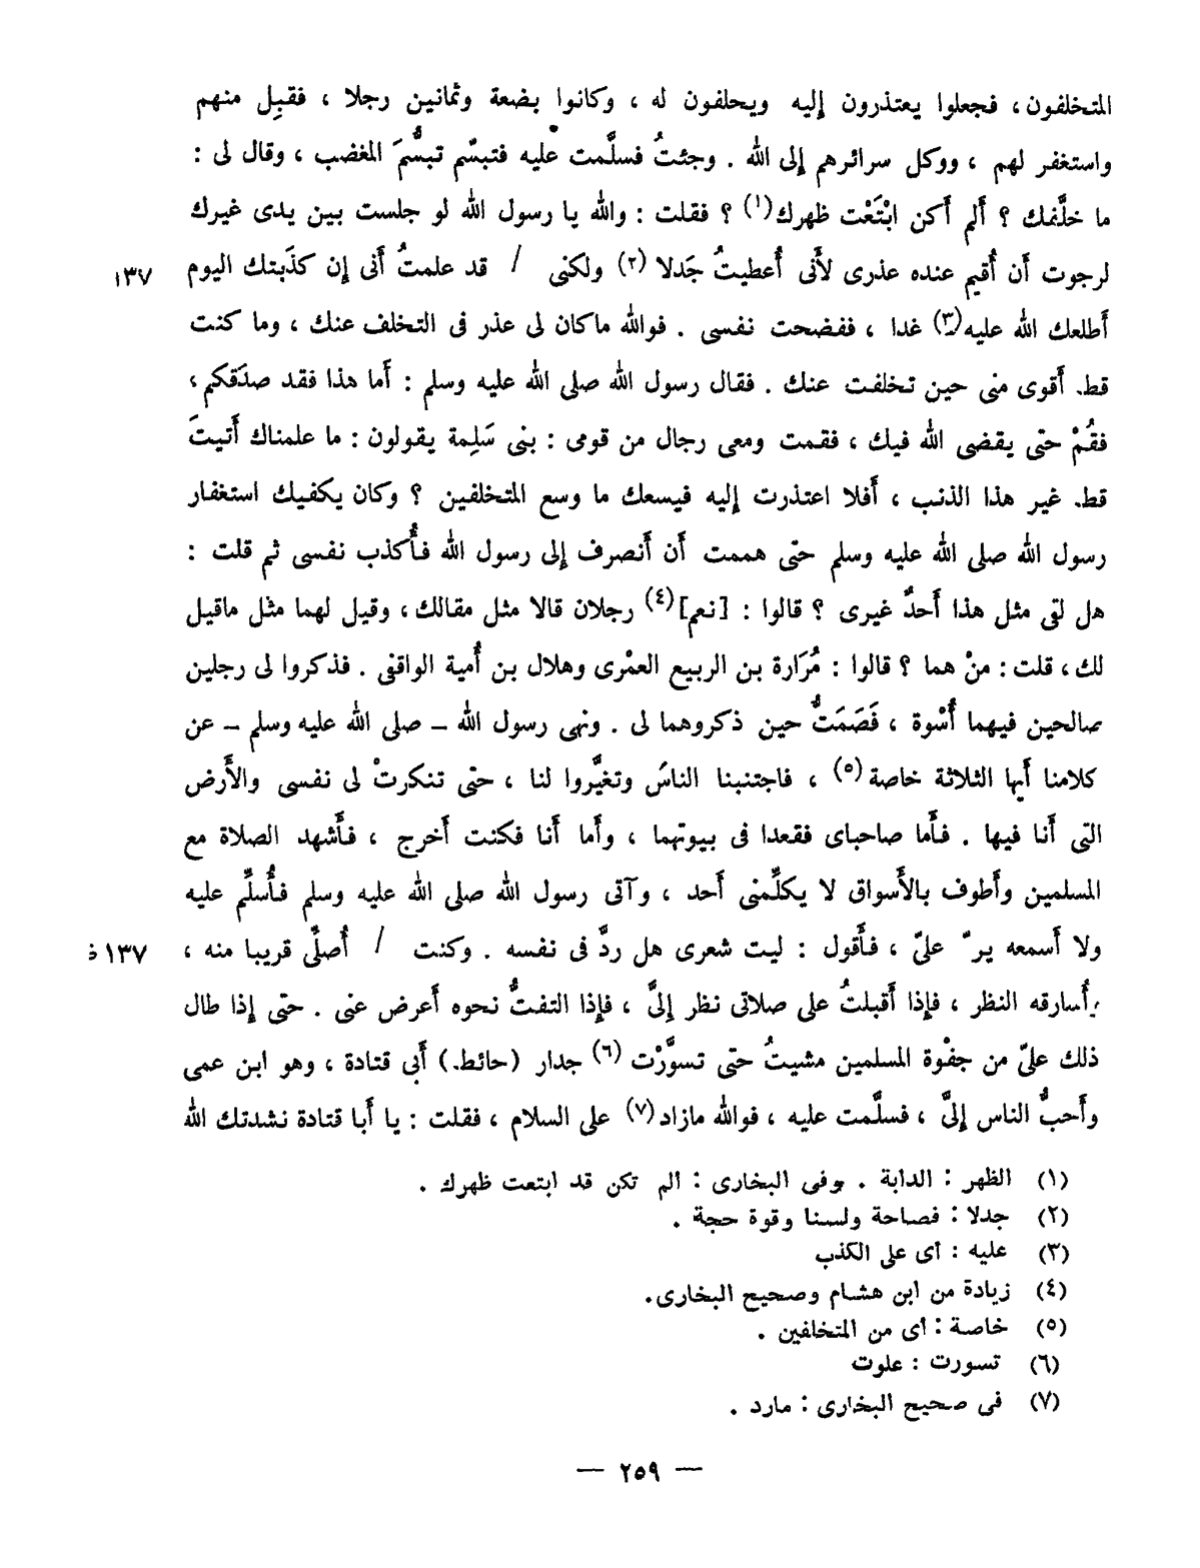 المتخلفون ، فجعلوا يعتذرون إليه ويحلفون له ، وكانوا بضعة وثمانين رجلا ، فقبِل منهم
واستغفر لهم ، ووكل سرائرهم إلى الله . وجئتُ فسلَّمت عليه فتبسّم تبسُّمَ المغضب ، وقال لى :
ما خلَّفك ؟ أَلم أَكن ابْتَعْت ظهرك(١) ؟ فقلت : والله يا رسول الله لو جلست بين يدى غيرك
لرجوت أَن أُقيم عنده عذرى لأَنى أُعطيتُ جَدلا (٢) ولكنى / قد علمتُ أَنى إن كذَبتك اليوم
١٣٧
أَطلعك الله عليه(٣) غدا ، ففضحت نفسى . فوالله ماكان لى عذر فى التخلف عنك ، وما كنت
قط. أَقوى منى حين تخلفت عنك . فقال رسول الله صلى الله عليه وسلم : أَما هذا فقد صدَقكم ،
فقُمْ حتى يقضى الله فيك ، فقمت ومعى رجال من قومى : بنى سَلِمة يقولون : ما علمناك أَتيتَ
قط. غير هذا الذنب ، أَفلا اعتذرت إليه فيسعك ما وسع المتخلفين ؟ وكان يكفيك استغفار
رسول الله صلى الله عليه وسلم حتى هممت أَن أَنصرف إلى رسول الله فأُكذب نفسى ثم قلت :
هل لقى مثل هذا أَحدٌ غيرى ؟ قالوا : [نعم](٤) رجلان قالا مثل مقالك ، وقيل لهما مثل ماقيل
لك ، قلت : منْ هما ؟ قالوا : مُرَارة بن الربيع العمْرى وهلال بن أُمية الواقفى . فذكروا لى رجلين
صالحين فيهما أُسْوة ، فَصَمَتُّ حين ذكروهما لى . ونهى رسول الله – صلى الله عليه وسلم – عن
كلامنا أَيها الثلاثة خاصة(٥) ، فاجتنبنا الناسُ وتغيَّروا لنا ، حتى تنكرتْ لى نفسى والأَرض
التى أَنا فيها . فأَما صاحباى فقعدا فى بيوتهما ، وأَما أَنا فكنت أَخرج ، فأَشهد الصلاة مع
المسلمين وأَطوف بالأَسواق لا يكلِّمنى أَحد ، وآتى رسول الله صلى الله عليه وسلم فأُسلِّم عليه
ولا أَسمعه ير ّ علىّ ، فأَقول : ليت شعرى هل ردَّ فى نفسه . وكنت / أُصلِّى قريبا منه ،
١٣٧ ظ
أُسارقه النظر ، فإذا أَقبلتُ على صلاتى نظر إلىَّ ، فإذا التفتُّ نحوه أَعرض عنى . حتى إذا طال
ذلك علىّ من جفْوة المسلمين مشيتُ حتى تسوَّرْت (٦) جدار (حائط.) أَبى قتادة ، وهو ابن عمى
وأَحبُّ الناس إلىَّ ، فسلَّمت عليه ، فوالله مازاد(٧) على السلام ، فقلت : يا أَبا قتادة نشدتك الله
(١) الظهر : الدابة . وفى البخارى : الم تكن قد ابتعت ظهرك .
(٢) جدلا : فصاحة ولسنا وقوة حجة .
(٣) عليه : أى على الكذب
(٤) زيادة من ابن هشام وصحيح البخارى.
(٥) خاصة : أى من المتخلفين .
(٦) تسورت : علوت
(٧) فى صحيح البخارى : مارد .
— ٢٥٩ —